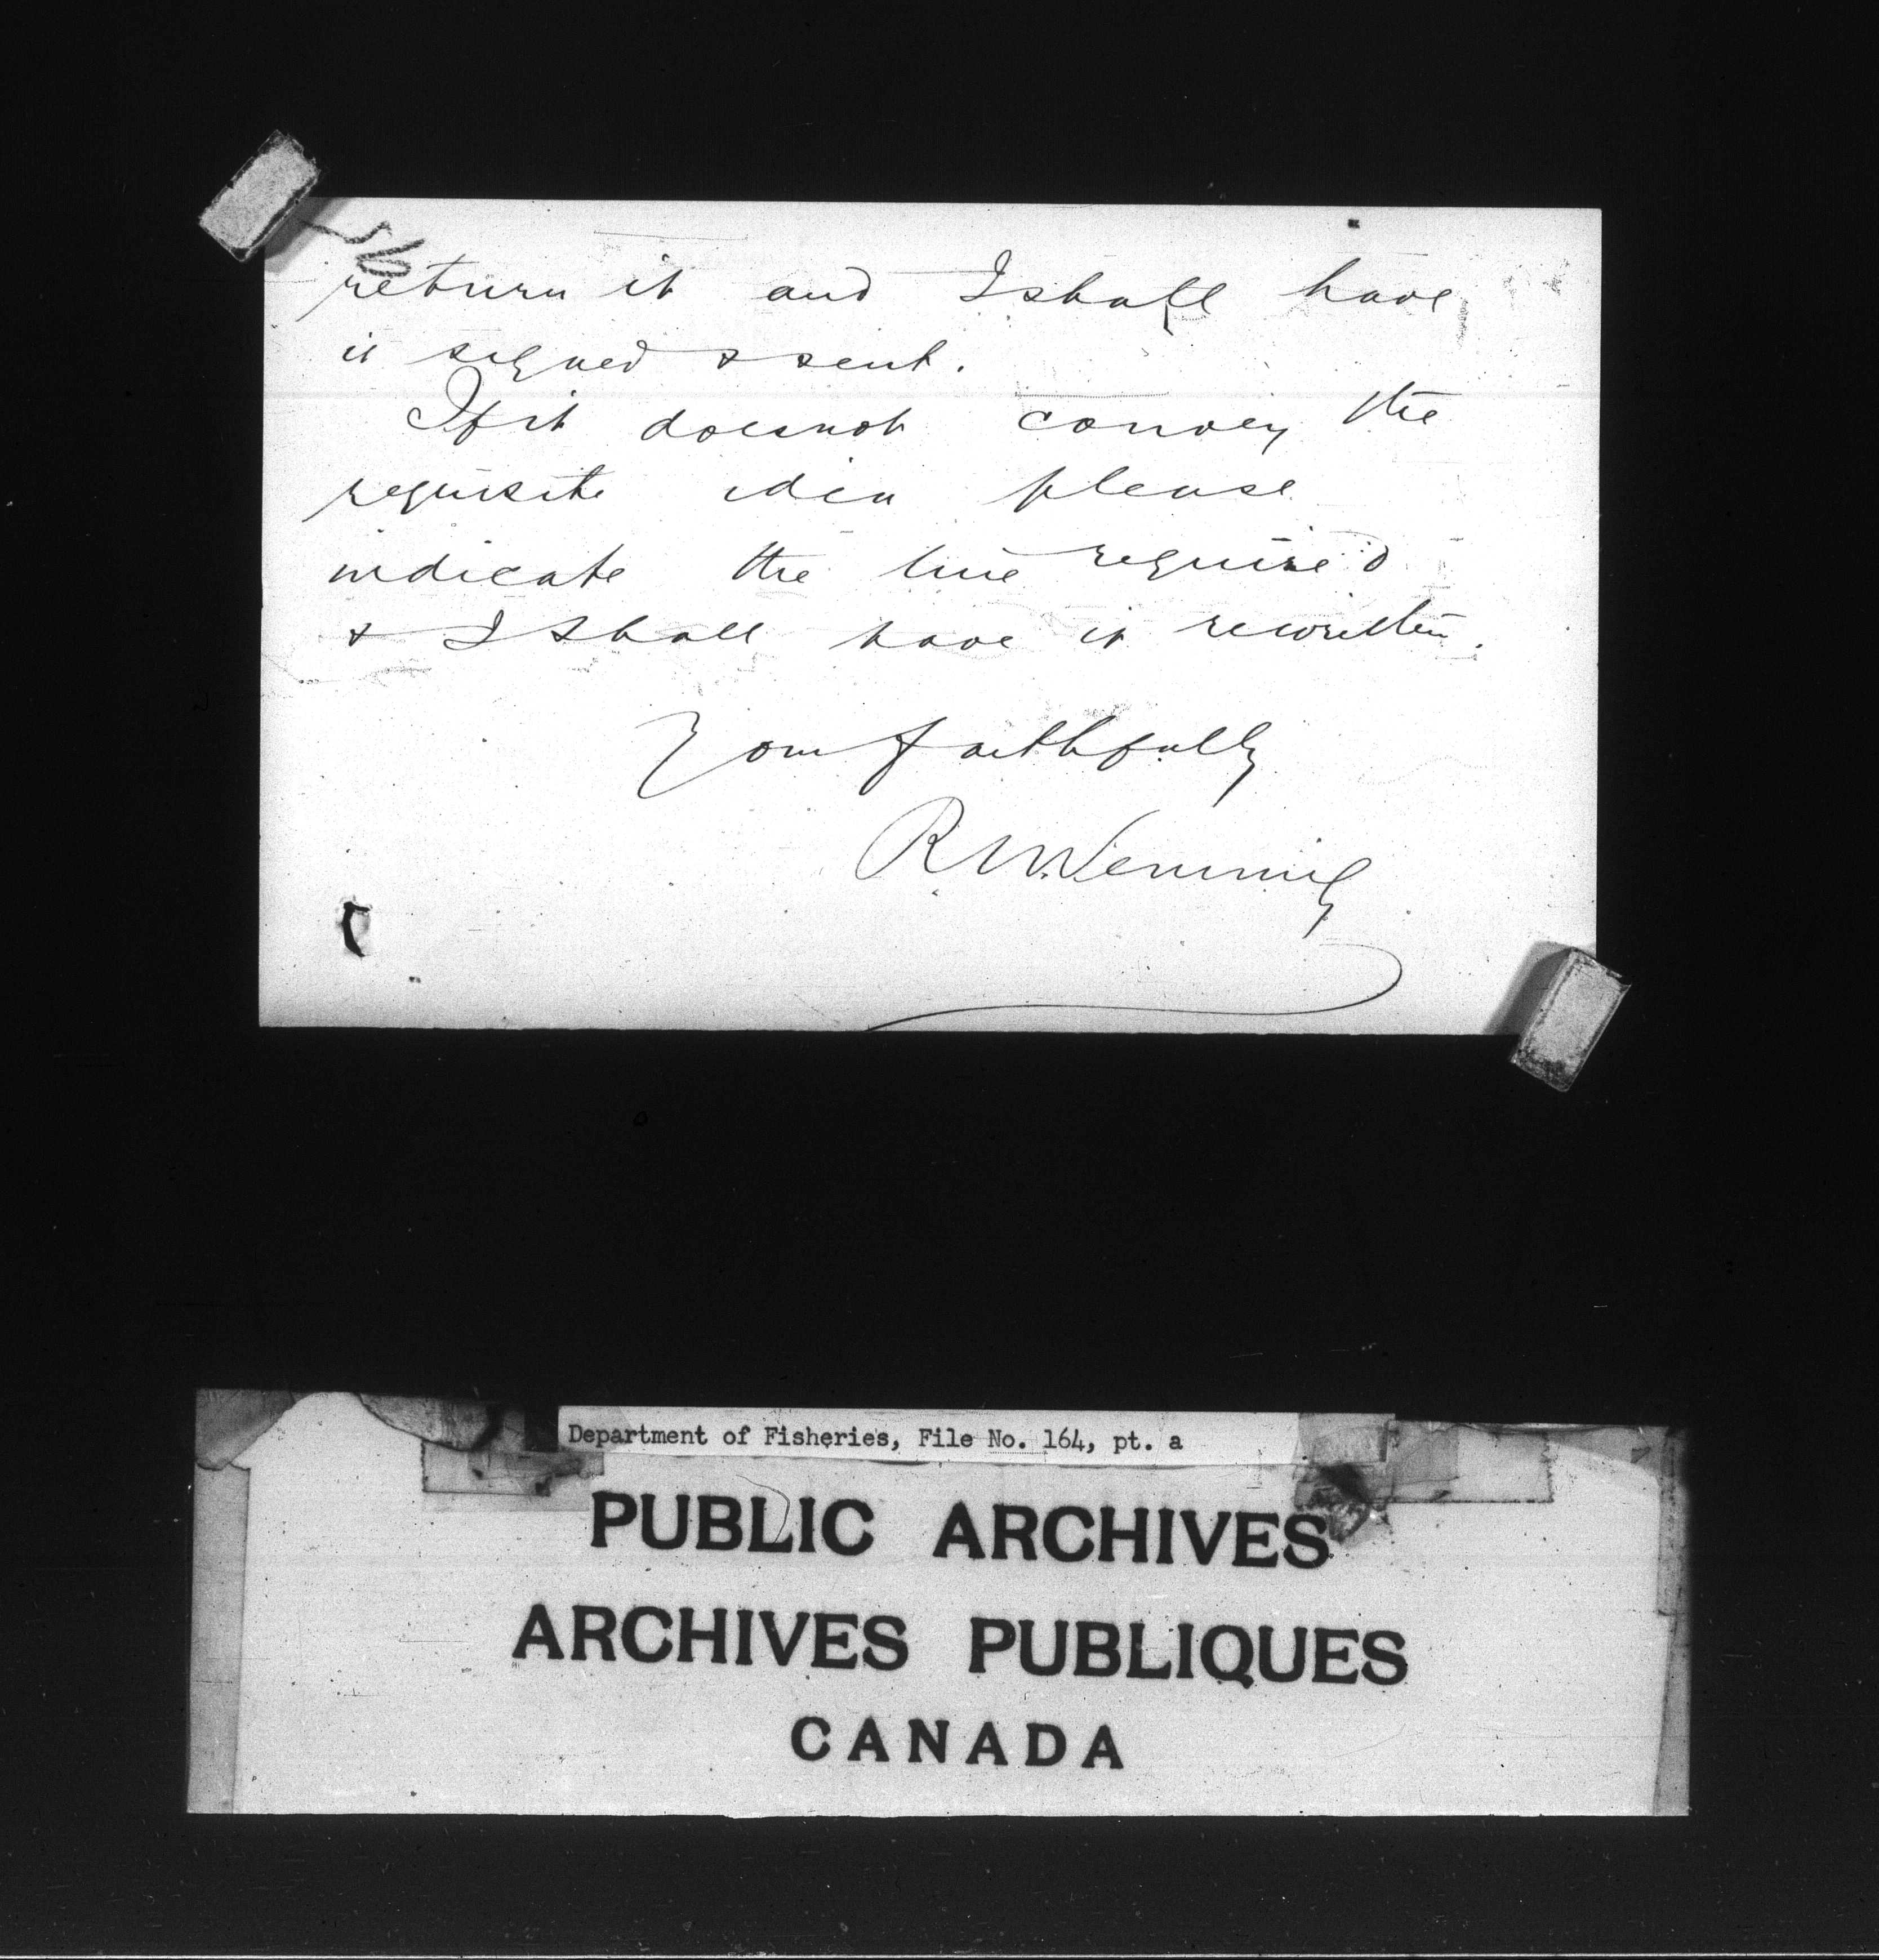 return it and I shall have
it signed & sent.
If it does not convey the
requisite idea please
indicate the line required
& I shall have it rewritten.
Your faithfully
Department of Fisheries, File No. 164, pt. a
PUBLIC ARCHIVES
ARCHIVES PUBLIQUES
CANADA